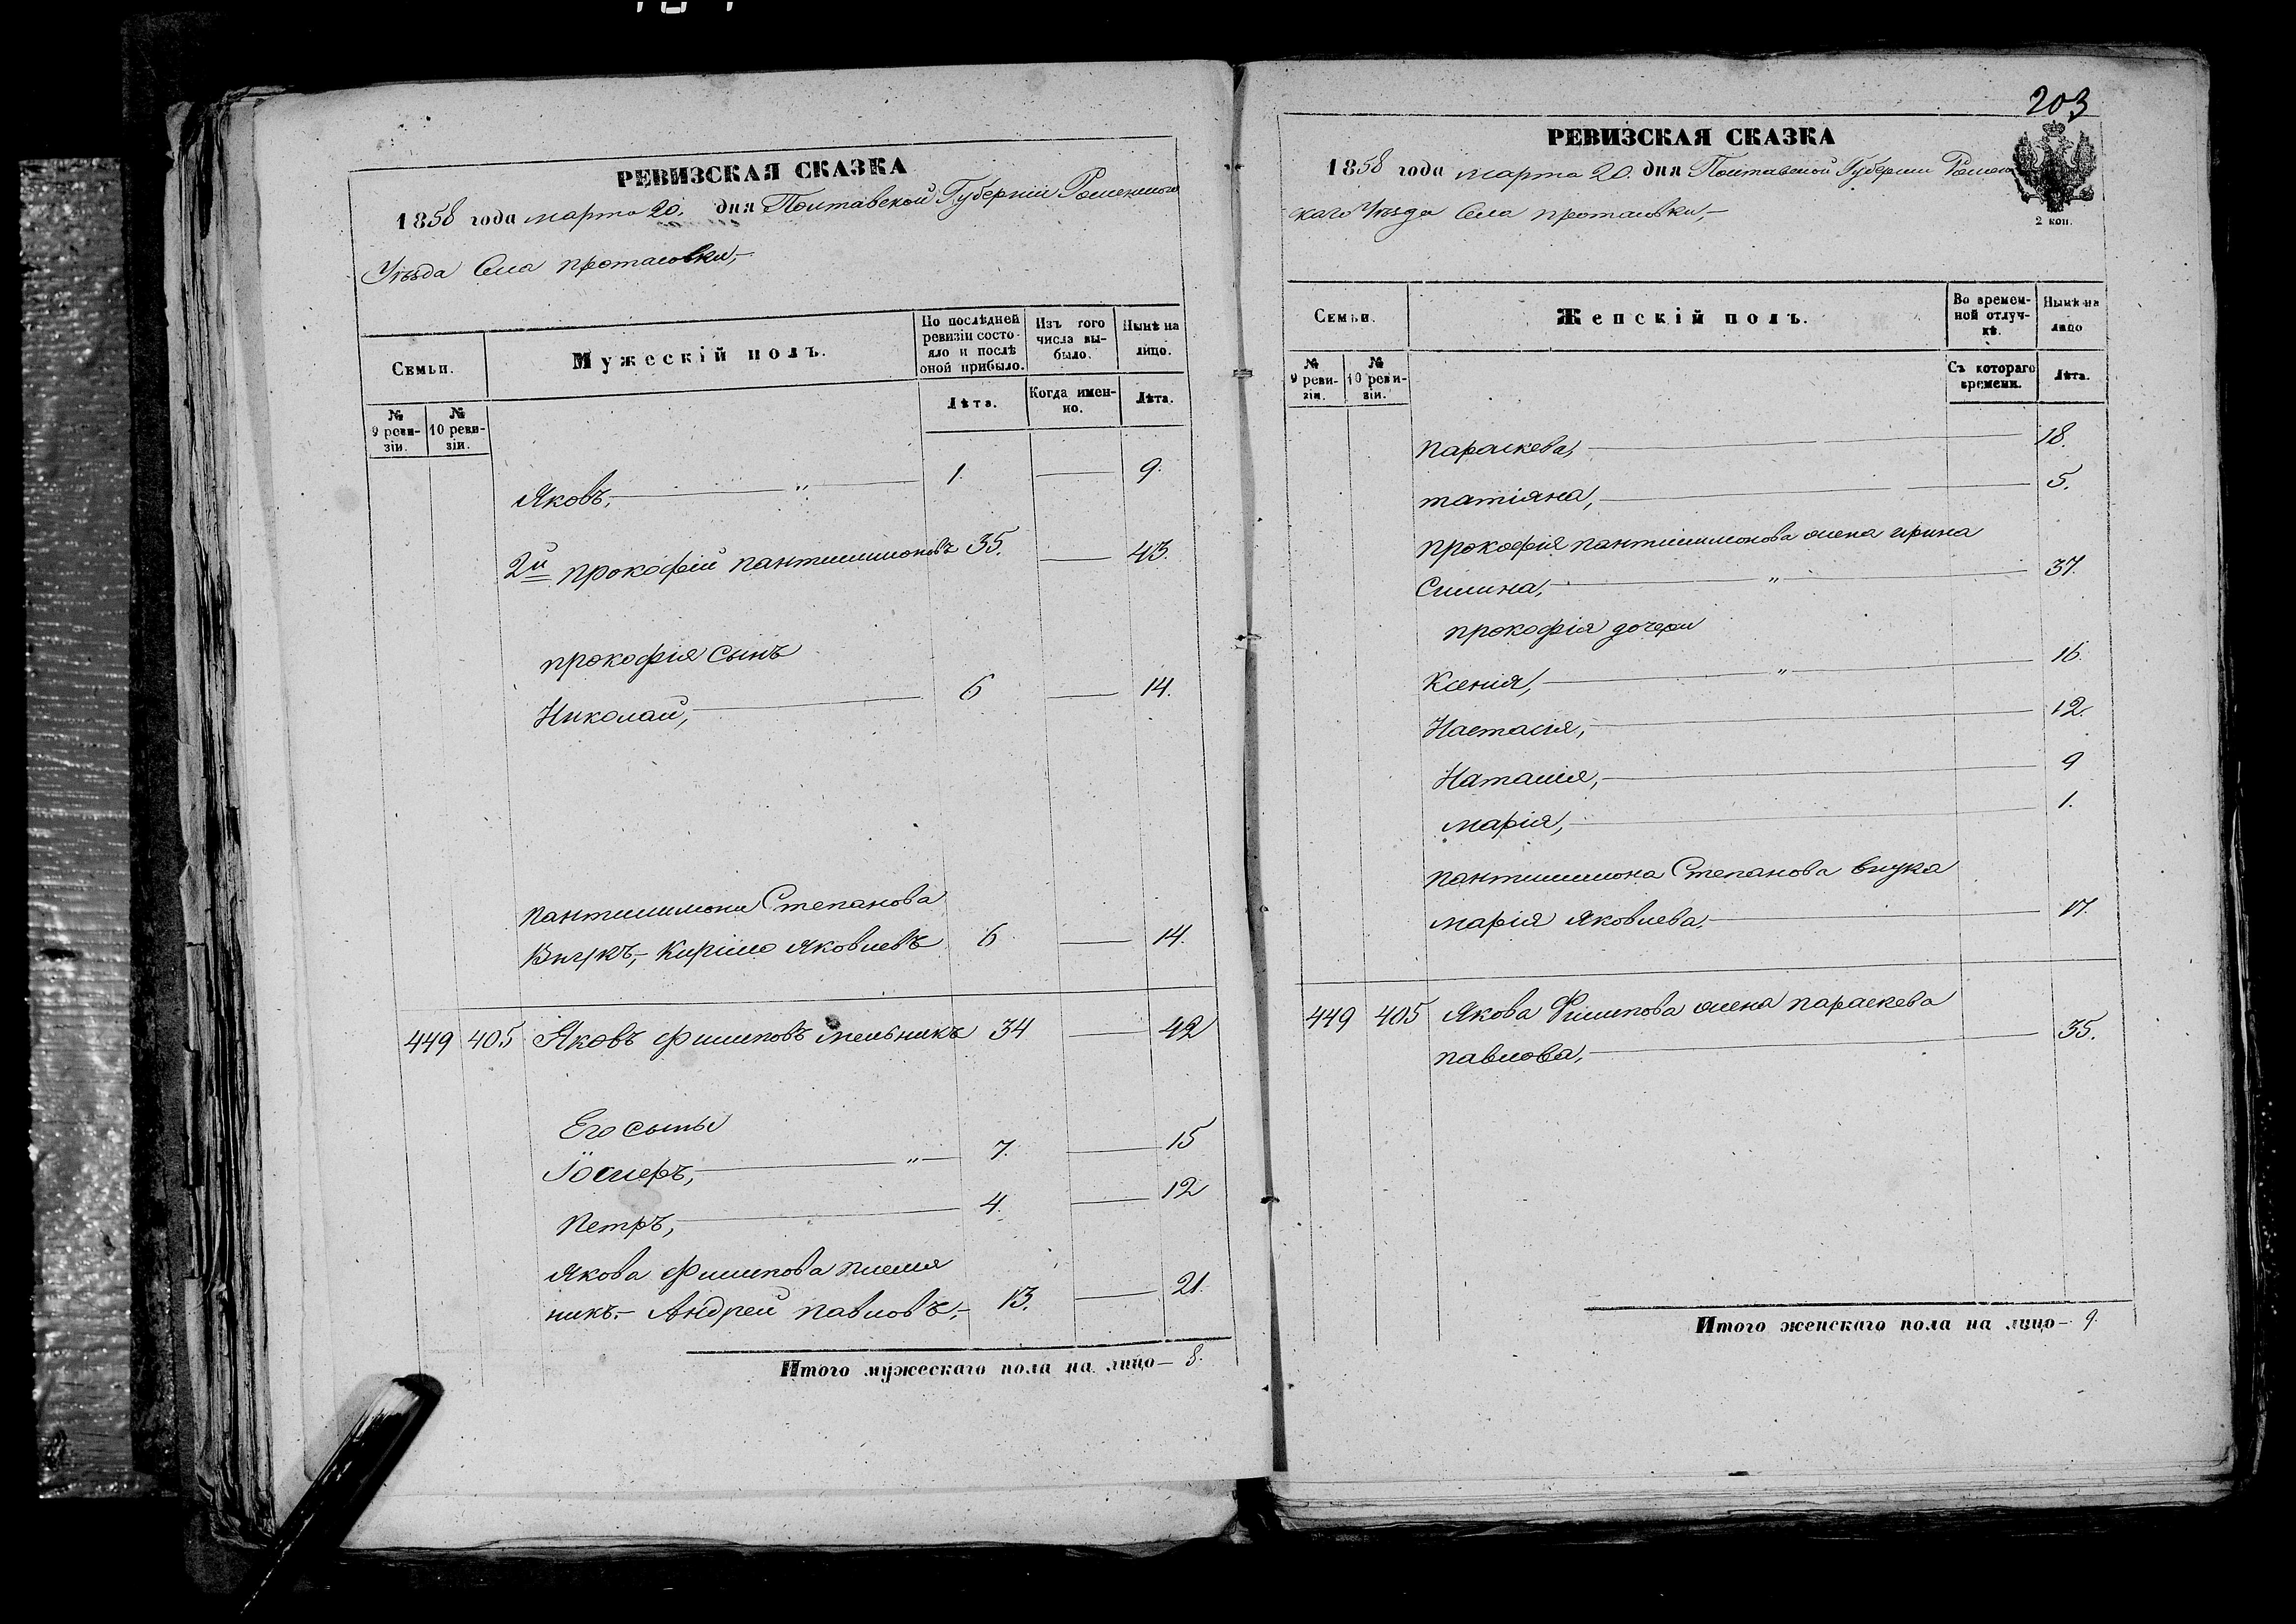 РЕВИЗСКАЯ СКАЗКА
1858 года марта 20. дня Полтавской Губерніи Роменского
Уезда Села протасовки,-
Семьи.
Мужескій полъ.
По послѣдней ревизіи состояло и послѣ оной прибыло.
Изъ того числа выбыло.
Нынѣ на лицо.
№ 9 ревизіи.
№ 10 ревизіи.
Лѣта.
Когда именно.
Лѣта.
Яковъ, — " — 1. — 9.
2й прокофій пантилимоновъ 35. — 43.
прокофія сынъ
Николай, — 6 — 14.
пантилимона Степанова
Внукъ,- Кирило Яковлевъ 6 — 14.
449 405 Яковъ Филиповъ мельникъ 34 — 42
Его сыны
Іосифъ, — " — 7. — 15
Петръ, — 4. — 12
Якова Филипова племя
никъ.- Андрей павловъ,- 13. — 21.
Итого мужескаго пола на лицо — 8.
203
РЕВИЗСКАЯ СКАЗКА
1858 года марта 20. дня Полтавской Губерніи Ромен
скаго Уезда Села протасовки,-
2 коп.
Семьи.
Женскій полъ.
Во временной отлучкѣ.
Нынѣ на лицо
№ 9 ревизіи.
№ 10 ревизіи.
Съ котораго времени.
Лѣта.
параскева, — 18.
татіяна, — 5.
прокофія пантилимонова жена ирина
Силина, — " — 37.
прокофія дочери
Ксенія, — " — 16.
Настасія, — 12.
Наталія, — 9
марія, — 1.
пантилимона Степанова внука
марія Яковлева, — 17.
449 405 Якова Филипова жена параскева
павлова, — 35.
Итого женскаго пола на лицо — 9.